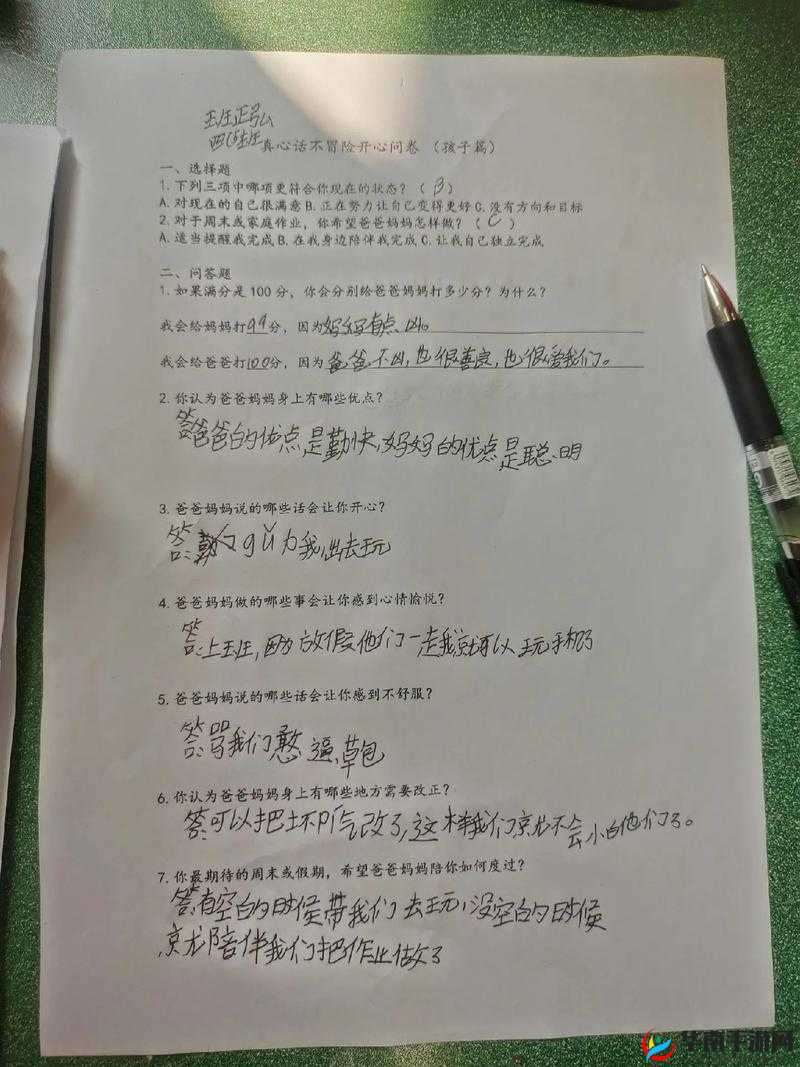 四(5)班
真心话不冒险开心问卷 （孩子篇）
一、选择题
1. 下列三项中哪项更符合你现在的状态？（ B ）
A. 对现在的自己很满意 B. 正在努力让自己变得更好 C. 没有方向和目标
2. 对于周末或家庭作业，你希望爸爸妈妈怎样做？（ C ）
A. 适当提醒我完成 B. 在我身边陪伴我完成 C. 让我自己独立完成
二、问答题
1. 如果满分是 100 分，你会分别给爸爸妈妈打多少分？为什么？
我会给妈妈打99分，因为妈妈有点凶。
我会给爸爸打100分，因为爸爸不凶，也很善良，也很爱我们。
2. 你认为爸爸妈妈身上有哪些优点？
答：爸爸的优点是勤快，妈妈的优点是聪明
3. 爸爸妈妈说的哪些话会让你开心？
答：gǔ力我，出去玩
4. 爸爸妈妈做的哪些事会让你感到心情愉悦？
答：上班，因为放假他们一走我就可以玩手机了
5. 爸爸妈妈说的哪些话会让你感到不舒服？
答：骂我们憨逼，草包
6. 你认为爸爸妈妈身上有哪些地方需要改正？
答：可以把坏脾气改了，这样我们就不会小白他们了。
7. 你最期待的周末或假期，希望爸爸妈妈陪你如何度过？
答：有空的时候带我们去玩，没空的时候
就陪伴我们把作业做了
华南手游网